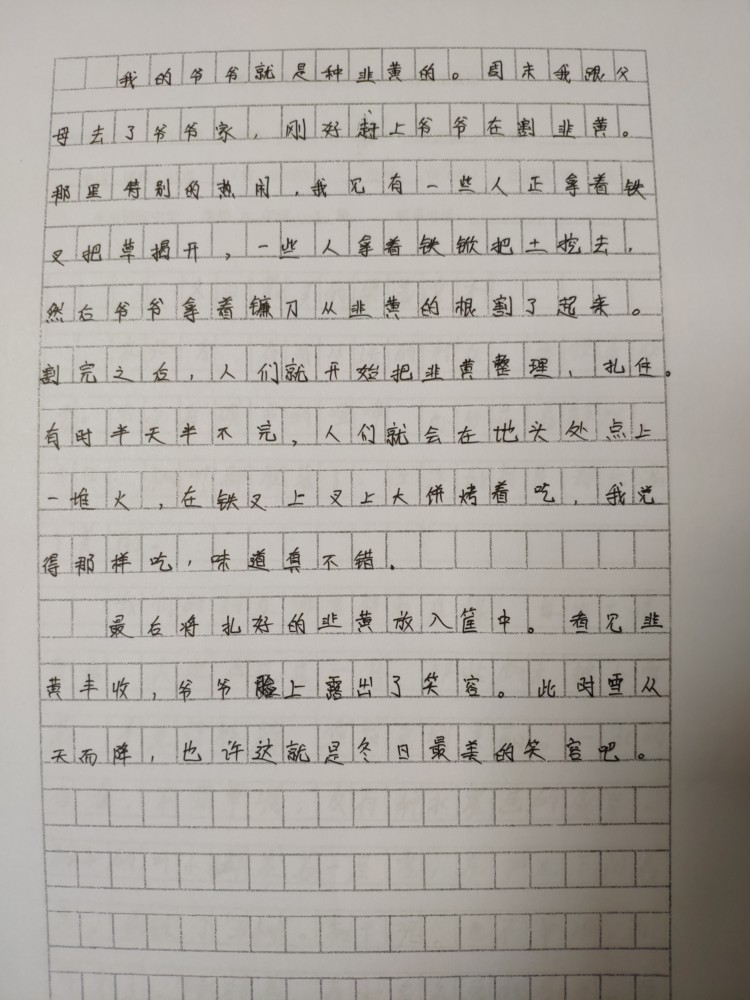 我的爷爷就是种韭黄的。周末我跟父
母去了爷爷家，刚好赶上爷爷在割韭黄。
那里特别的热闹，我见有一些人正拿着铁
叉把草揭开，一些人拿着铁锨把土挖去，
然后爷爷拿着镰刀从韭黄的根割了起来。
割完之后，人们就开始把韭黄整理、扎住。
有时半天半不完，人们就会在地头处点上
一堆火，在铁叉上叉上大饼烤着吃，我觉
得那样吃，味道真不错。
最后将扎好的韭黄放入筐中。看见韭
黄丰收，爷爷脸上露出了笑容。此时雪从
天而降，也许这就是冬日最美的笑容吧。